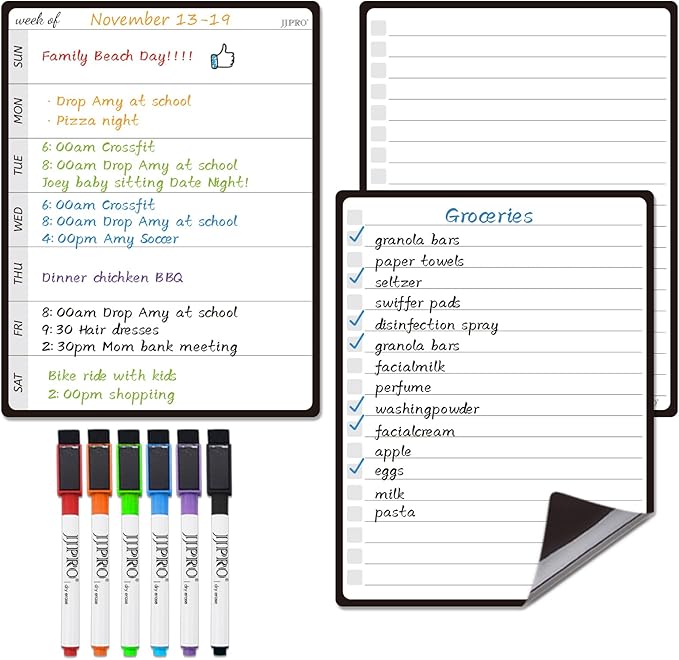 week of November 13-19 JJPRO®
SUN
Family Beach Day!!!!
MON
· Drop Amy at school
· Pizza night
TUE
6:00am Crossfit
8:00am Drop Amy at school
Joey baby sitting Date Night!
WED
6:00am Crossfit
8:00am Drop Amy at school
4:00pm Amy Soccer
THU
Dinner chichken BBQ
FRI
8:00am Drop Amy at school
9:30 Hair dresses
2:30pm Mom bank meeting
SAT
Bike ride with kids
2:00pm shoppiing
Groceries
granola bars
paper towels
seltzer
swiffer pads
disinfection spray
granola bars
facialmilk
perfume
washingpowder
facialcream
apple
eggs
milk
pasta
JJPRO® | dry erase
JJPRO® | dry erase
JJPRO® | dry erase
JJPRO® | dry erase
JJPRO® | dry erase
JJPRO® | dry erase